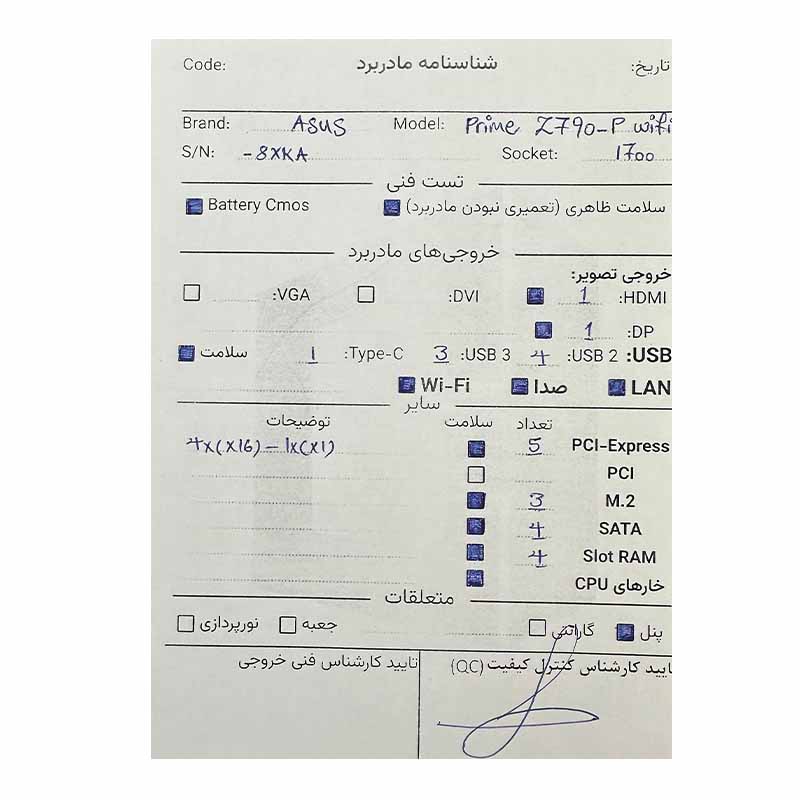 Code: شناسنامه مادربرد تاریخ:
Brand: ASUS Model: Prime Z790-P wifi
S/N: -8XKA Socket: 1700
تست فنی
سلامت ظاهری (تعمیری نبودن مادربرد) Battery Cmos
خروجی‌های مادربرد
خروجی تصویر:
HDMI: 1 DVI: VGA:
DP: 1
USB: USB 2: 4 USB 3: 3 Type-C: 1 سلامت
LAN صدا Wi-Fi
سایر
تعداد سلامت توضیحات
PCI-Express 5 4x(x16) - 1x(x1)
PCI
M.2 3
SATA 4
Slot RAM 4
خارهای CPU
متعلقات
پنل گارانتی جعبه نورپردازی
تایید کارشناس کنترل کیفیت (QC) تایید کارشناس فنی خروجی